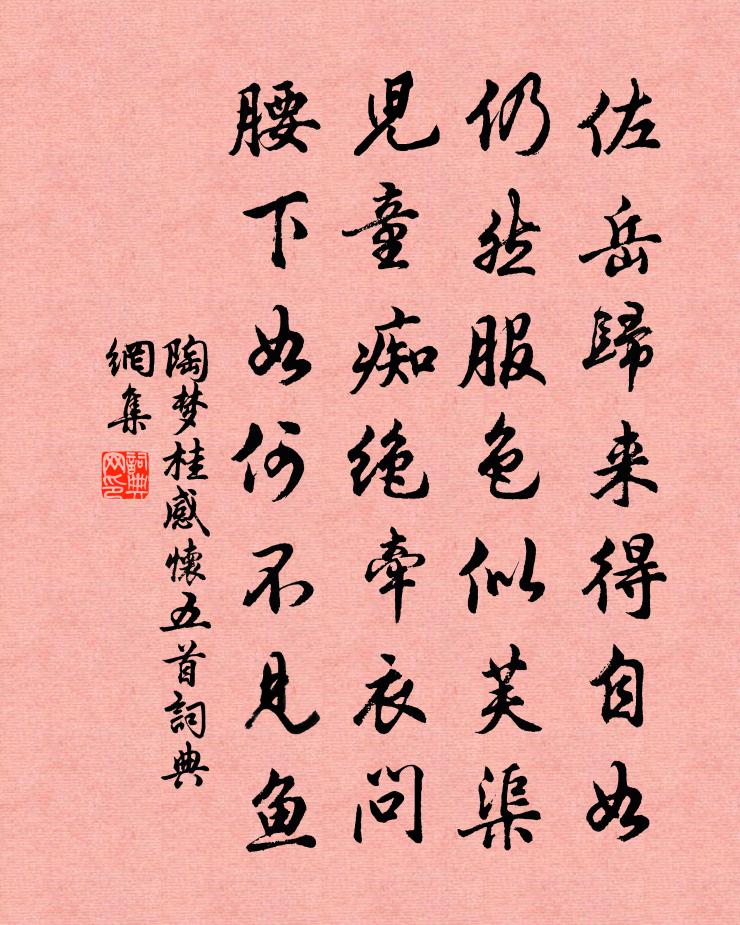 佐岳歸来得自如
仍然服色似芙渠
児童痴绝牽衣问
腰下如何不见鱼
陶梦桂感懷五首詞典
網集
詞典
网印